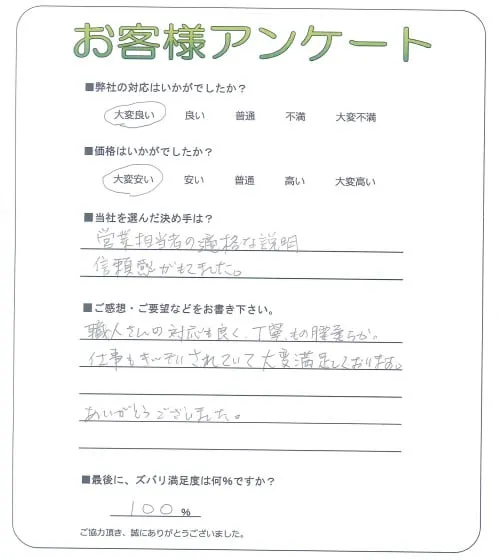 お客様アンケート
■弊社の対応はいかがでしたか？
大変良い 良い 普通 不満 大変不満
■価格はいかがでしたか？
大変安い 安い 普通 高い 大変高い
■当社を選んだ決め手は？
営業担当者の適格な説明
信頼感がもてました。
■ご感想・ご要望などをお書き下さい。
職人さんの対応も良く、丁寧、もの腰柔らか。
仕事もきっちりされていて大変満足しております。
ありがとうございました。
■最後に、ズバリ満足度は何%ですか？
100 %
ご協力頂き、誠にありがとうございました。